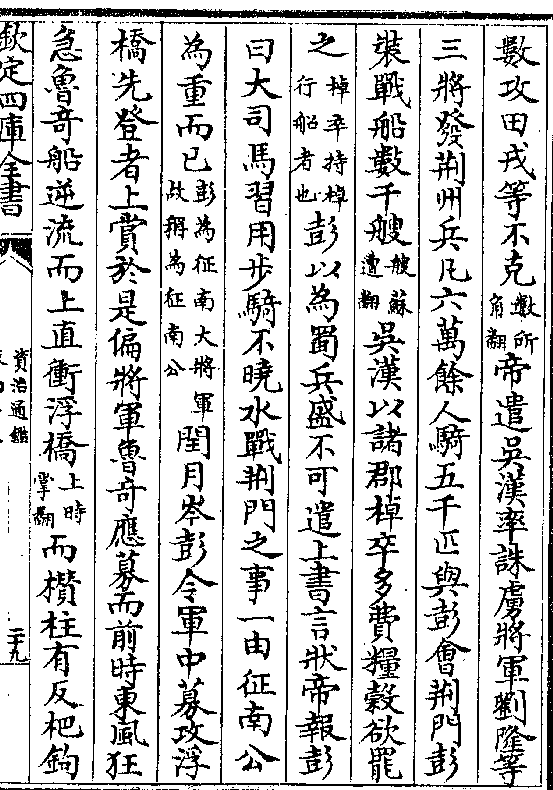 數攻田戎等不克數所角翻帝遣吳漢率誅虜將軍劉隆等
三將發荆州兵凡六萬餘人騎五千匹與彭會荆門彭
裝戰船數千艘艘蘇遭翻吳漢以諸郡棹卒多費糧穀欲罷
之棹卒持棹行船者也彭以為蜀兵盛不可遣上書言狀帝報彭
曰大司馬習用步騎不曉水戰荆門之事一由征南公
為重而已彭為征南大將軍故稱為征南公閏月岑彭令軍中募攻浮
橋先登者上賞於是偏將軍魯奇應募而前時東風狂
急魯奇船逆流而上直衝浮橋上時掌翻而欑柱有反杷鉤
欽定四庫全書
資治通鑑
二十九